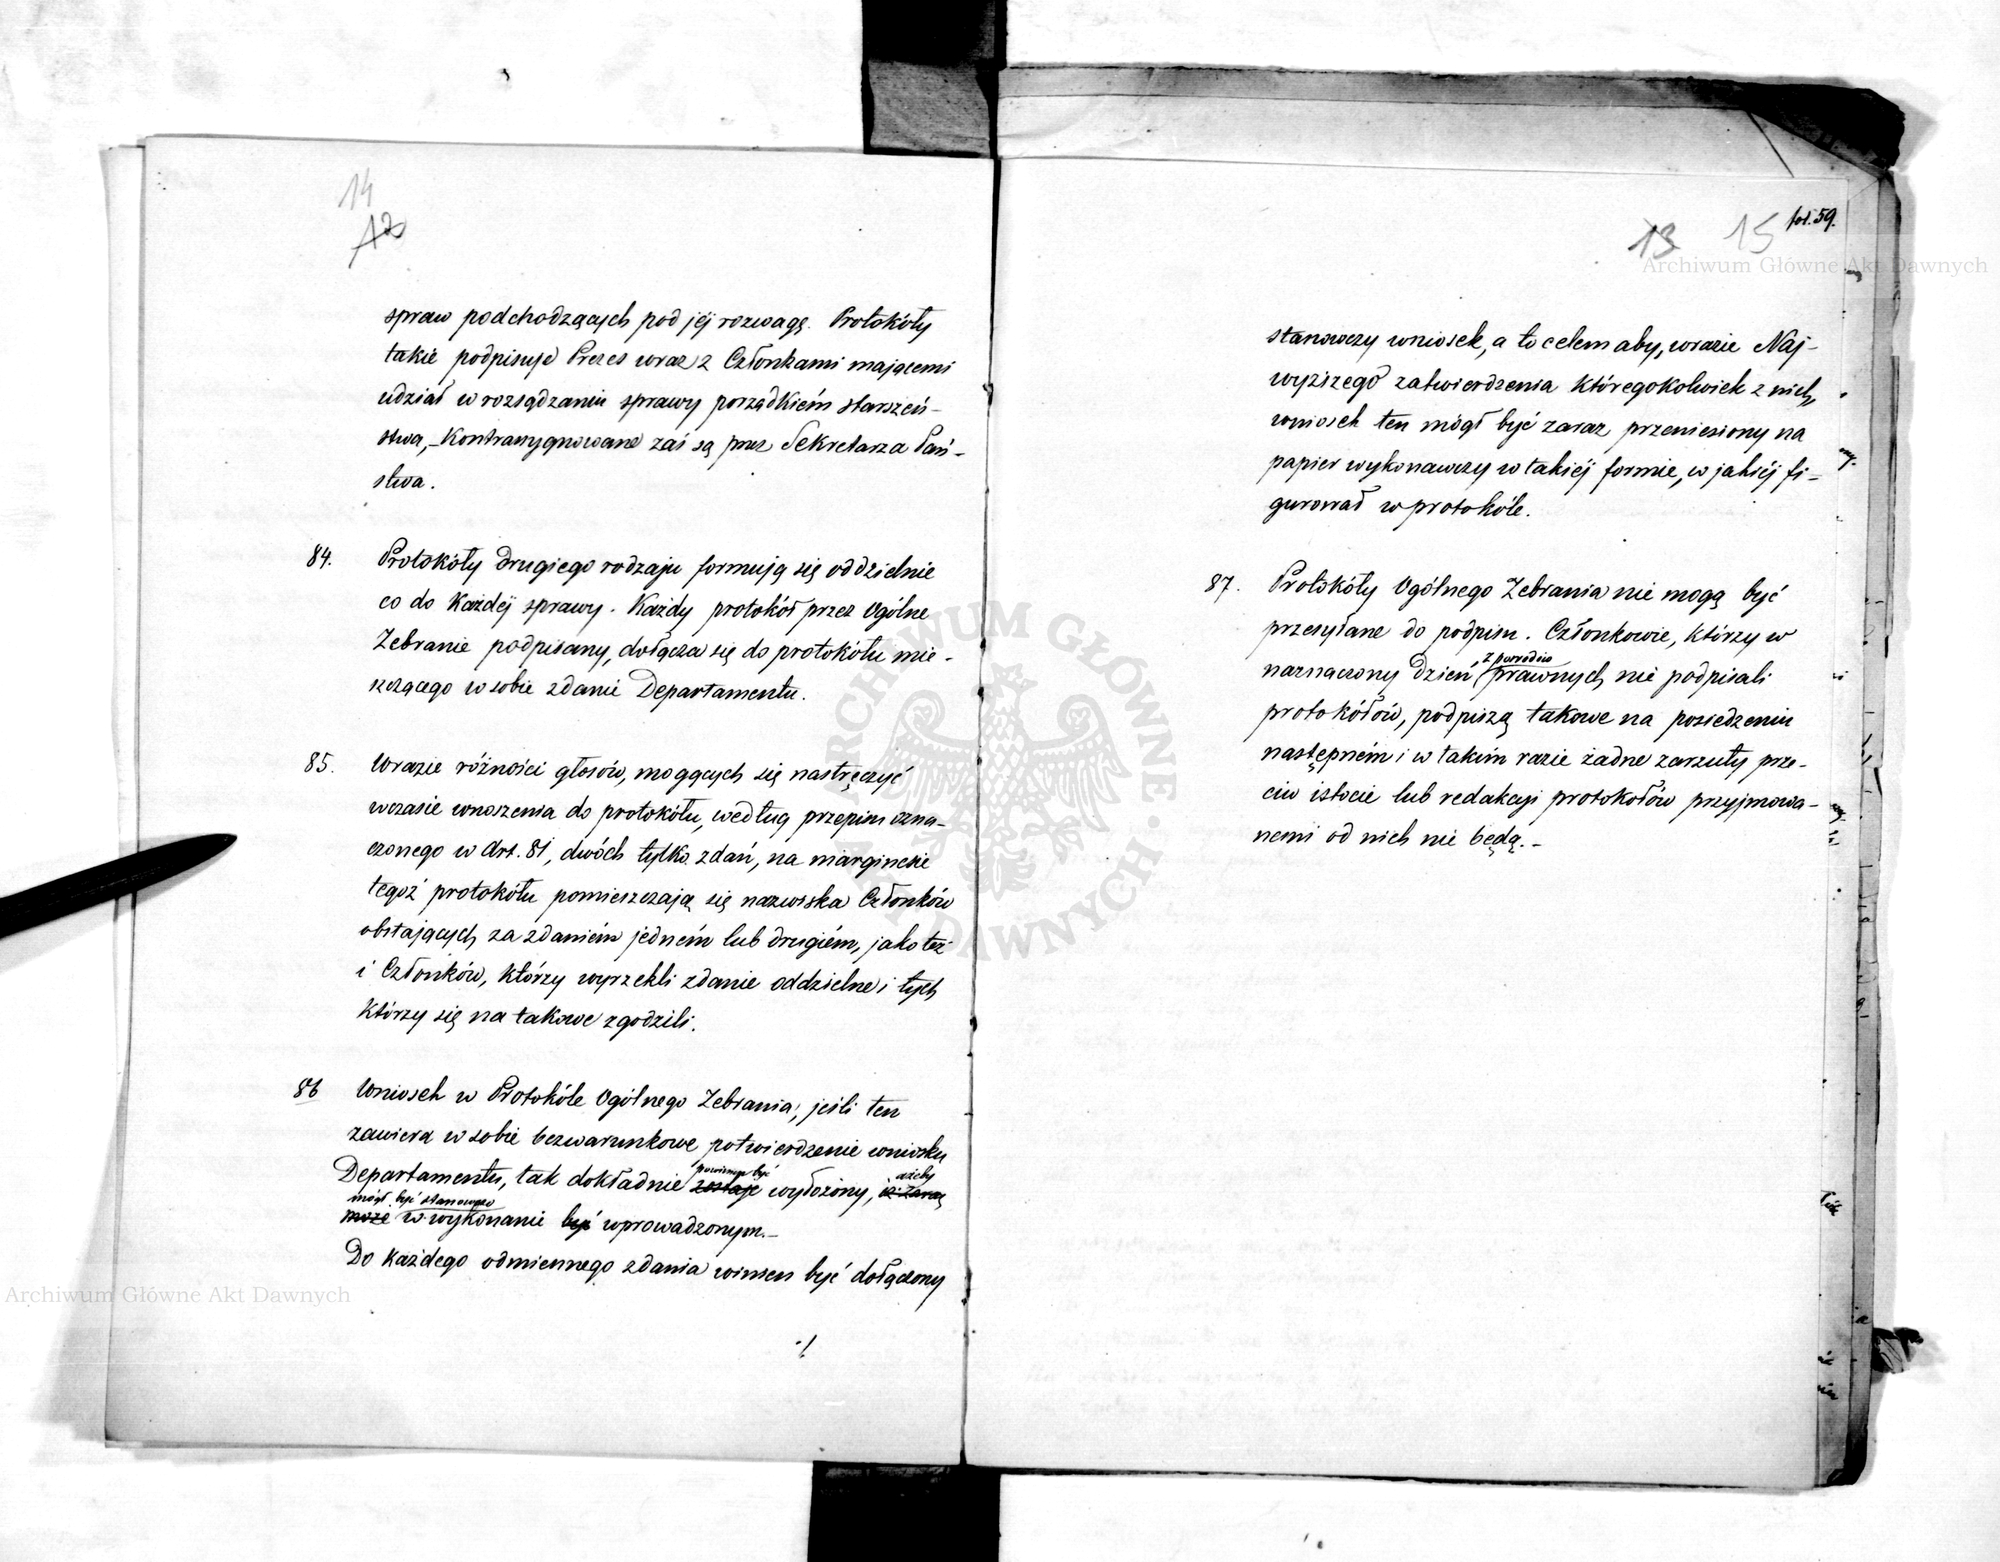 14
12
spraw podchodzących pod jéj rozwagę. Protokóły
takie podpisuje Prezes wraz z Członkami mającemi
udział w rozsądzaniu sprawy porządkiém starszeń-
stwa, – Kontrasygnowane zaś są przez Sekretarza Pań-
stwa.
84. Protokóły drugiego rodzaju formują się oddzielnie
co do Każdéj sprawy. Każdy protokół przez Ogólne
Zebranie podpisany, dołącza się do protokółu mie-
szczącego w sobie zdanie Departamentu.
85. Wrazie różności głosów, mogących się nastręczyć
wczasie wnoszenia do protokółu, według przepisu ozna-
czonego w Art. 81, dwóch tylko zdań, na marginesie
tegoż protokółu pomieszczają się nazwiska Członków
obstających za zdaniem jedném lub drugiém, jako też
i Członków, którzy wyrzekli zdanie oddzielne i tych
którzy się na takowe zgodzili.
86 Wniosek w Protokóle Ogólnego Zebrania, jeśli ten
zawiera w sobie bezwarunkowe potwierdzenie wniosku
powinien być ażeby
Departamentu, tak dokładnie zostaje wyłożony, iż zaraz
mógł być stanowczo
może w wykonanie być wprowadzonym. –
Do każdego odmiennego zdania winien być dołączony
./
13 15 fol. 59.
stanowczy wniosek, a to celem aby, wrazie Naj-
wyższego zatwierdzenia któregokolwiek z nich,
wniosek ten mógł być zaraz przeniesiony na
papier wykonawczy w takiéj formie, w jakiéj fi-
gurował w protokóle.
87. Protokóły Ogólnego Zebrania nie mogą być
przesyłane do podpisu. Członkowie, którzy w
z powodów
naznaczony dzień, prawnych nie podpisali
protokółów, podpiszą takowe na posiedzeniu
następném i w takim razie żadne zarzuty prze-
ciw istocie lub redakcyi protokołów przyjmowa-
nemi od nich nie będą. –
Archiwum Główne Akt Dawnych
Archiwum Główne Akt Dawnych
ARCHIWUM GŁÓWNE AKT DAWNYCH